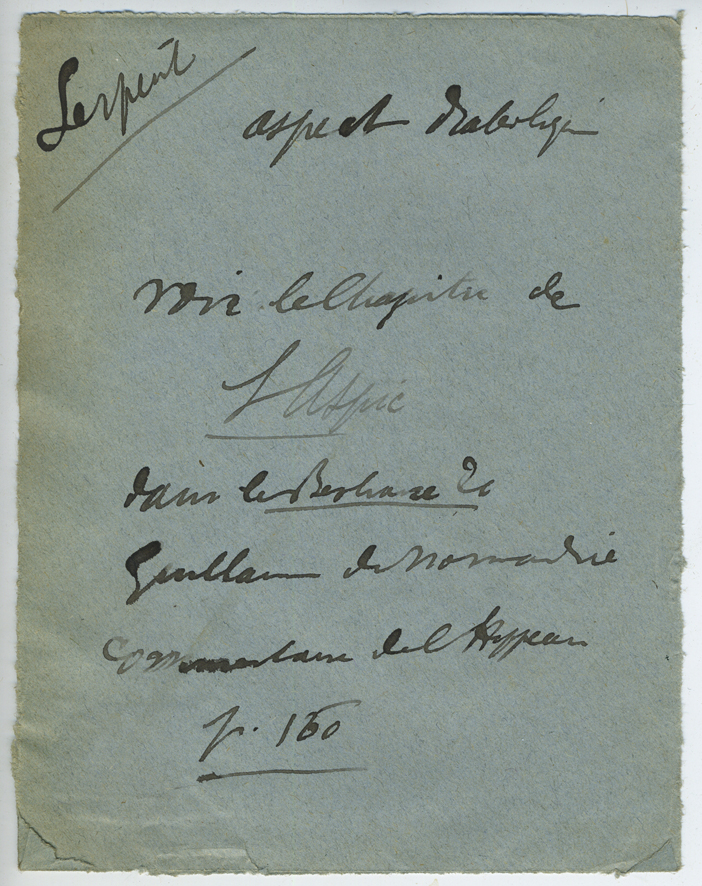 Serpent
aspect diabolique
voir le Chapitre de
l'Aspic
dans le Bestiaire de
Guillaume de Normandie
Commentaire de Hippeau
p. 160